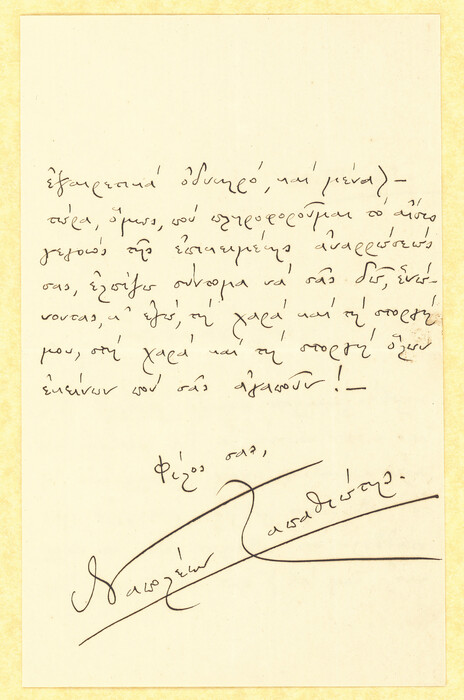 ἐξαιρετικά ὀδυνηρό, καί μένα) —
τώρα, ὅμως, πού πληροφοροῦμαι τό αἴσιο
γεγονός τῆς ἐπικειμένης ἀναρρώσεώς
σας, ἐλπίζω σύντομα νά σᾶς δῶ, ἑνώ-
νοντας, κ' ἐγώ, τή χαρά καί τή στοργή
μου, στή χαρά καί τή στοργή ὅλων
ἐκείνων πού σᾶς ἀγαποῦν! —
Φίλος σας,
Ναπολέων Λαπαθιώτης.